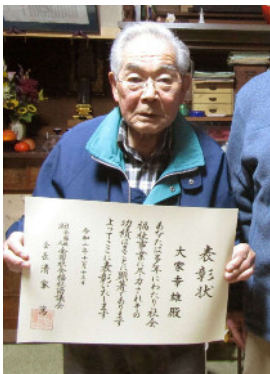 表彰状
大家幸雄殿
あなたは多年にわたり社会
福祉事業に尽力されその
功績はまことに顕著であります
よってここに表彰いたします
令和二年十一月二十日
社会福祉法人 全国社会福祉協議会
会長 清家 篤